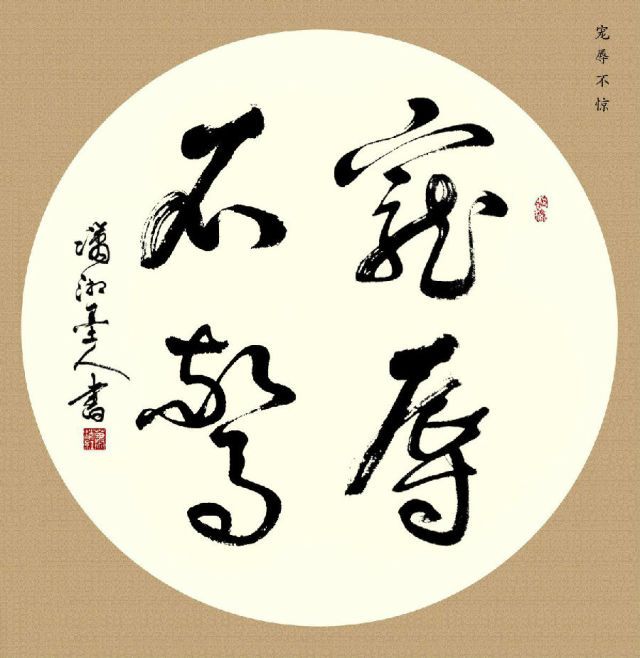 宠辱不惊
寵辱
不驚
瀟湘墨人書